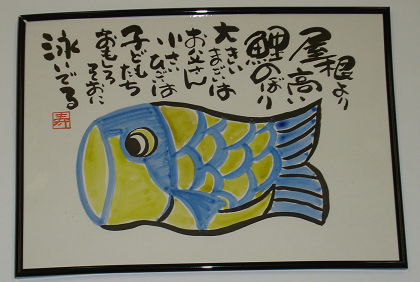 屋根より
高い
鯉のぼり
大きい
まごいは
お父さん
小さい
ひごいは
子どもたち
おもしろ
そおに
泳いでる
寿